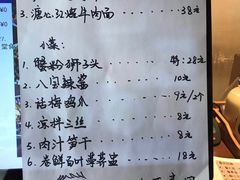 3. 溏心红烧牛肉面 38元
小菜:
1. 蟹粉狮子头 28元
2. 八宝辣酱 10元
3. 话梅鸡爪 9元/2个
4. 凉拌三丝 8元
5. 肉汁笋干 8元
6. 卷鲜百叶 18元